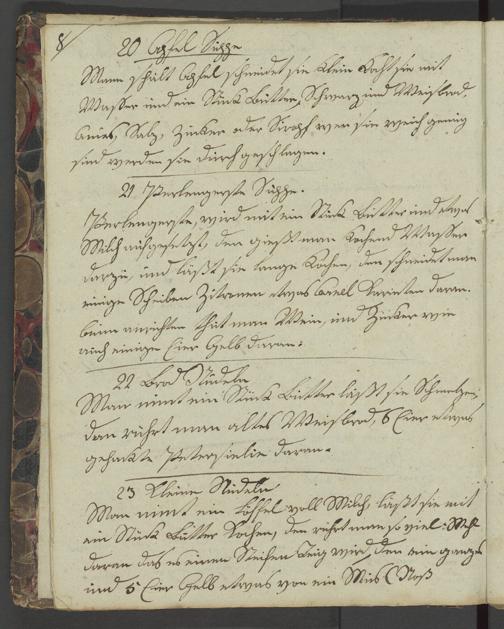 8
20 Apfel Suppe
Mann schält Apfel schneidet sie klein kocht sie mit
Wasser und ein Stück Butter, Schwarz und Weisbrod,
Anies, Salz, Zucker oder Sirop, wen sie weich genug
sind werden sie durchgeschlagen.
21 Perlengerste Suppe.
Perlengerste, wird mit ein Stück Butter und etwas
Milch aufgesetzt, den giest man kochend Wasser
darzu, und läßt sie lange kochen, den schneidet man
einige Scheiben Zitronen etwas Corinten daran.
beim anrichten thut man Wein, und Zucker wie
auch einige Eier Gelb daran.
22 Brod Nudeln
Man nimt ein Stück Butter läßt sie Schmelzen,
dan rührt man altes Weisbrod, 6 Eier etwas
gehackte Petersielie daran.
23 Kleine Nudeln
Man nimt ein Löffel voll Milch, läßt sie mit
ein Stück Butter kochen, den rührt man so viel Mehl
daran das es einen Steifen Teig wird, den ein ganzes
und 5 Eier Gelb etwas von ein Mus